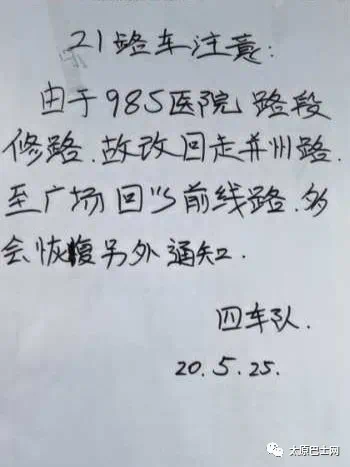 21路车注意:
由于985医院路段
修路.故改回走并州路.
至广场回以前线路.多
会恢复另外通知.
四车队.
20.5.25.
太原巴士网